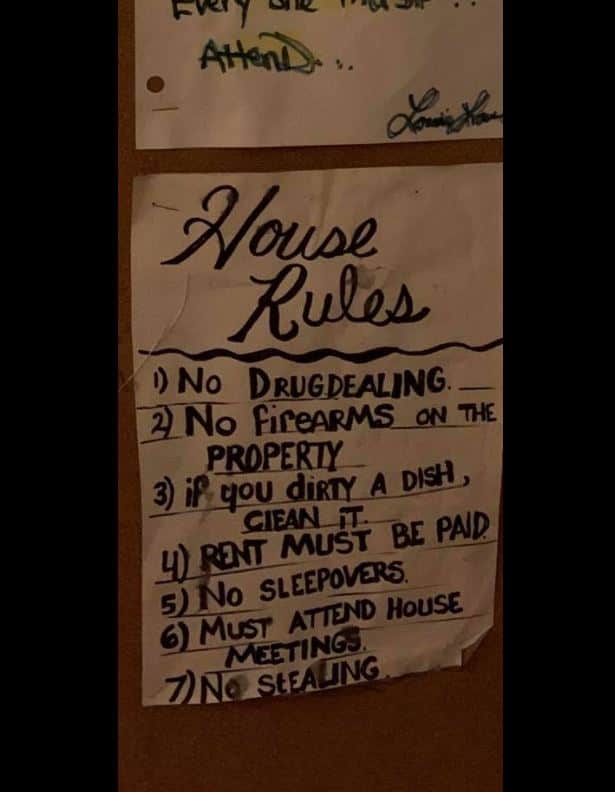 Every one must ..
Attend. ..
House
Rules
1) No DRUGDEALING.
2) No fireARMS ON THE
PROPERTY
3) if you diRTY A DISH,
ClEAN iT.
4) RENT MUST BE PAID.
5) No SLEEPOVERS.
6) MUST ATTEND HOUSE
MEETINGS.
7) No StEALING.